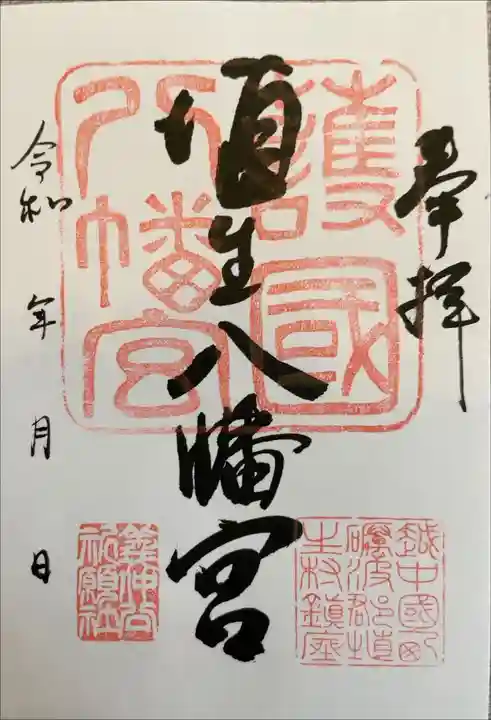 奉拝
護國
八幡宮
埴生八幡宮
越中國
礪波郡埴
生村鎮座
義仲公
祈願社
令和 年 月 日